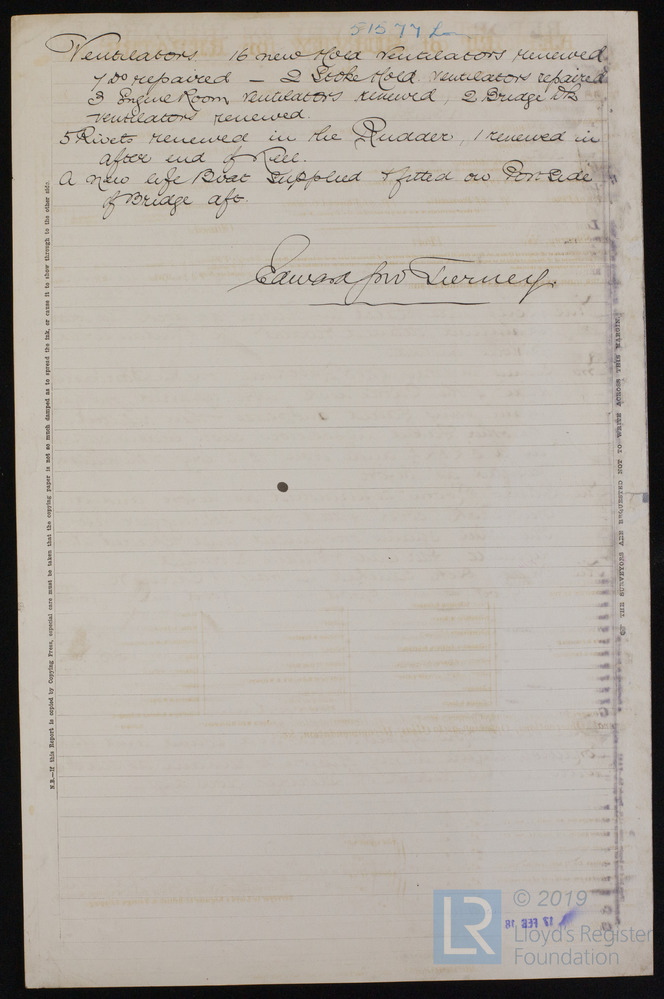 51577 L
Ventilators. 16 new Hold Ventilators renewed
7 Do repaired – 2 Stoke Hold Ventilators repaired
3 Engine Room Ventilators renewed, 2 Bridge Dk
Ventilators renewed.
5 Rivets renewed in the Rudder, 1 renewed in
after end of Keel.
A new Life Boat supplied & fitted on Port Side
of Bridge aft.
Edward Tierney.
N.B.—If this Report is copied by Copying Press, especial care must be taken that the copying paper is not so much damped as to spread the ink, or cause it to show through to the other side.
THE SURVEYORS ARE REQUESTED NOT TO WRITE ACROSS THIS MARGIN
17 FEB 16
LR
© 2019
Lloyd's Register
Foundation